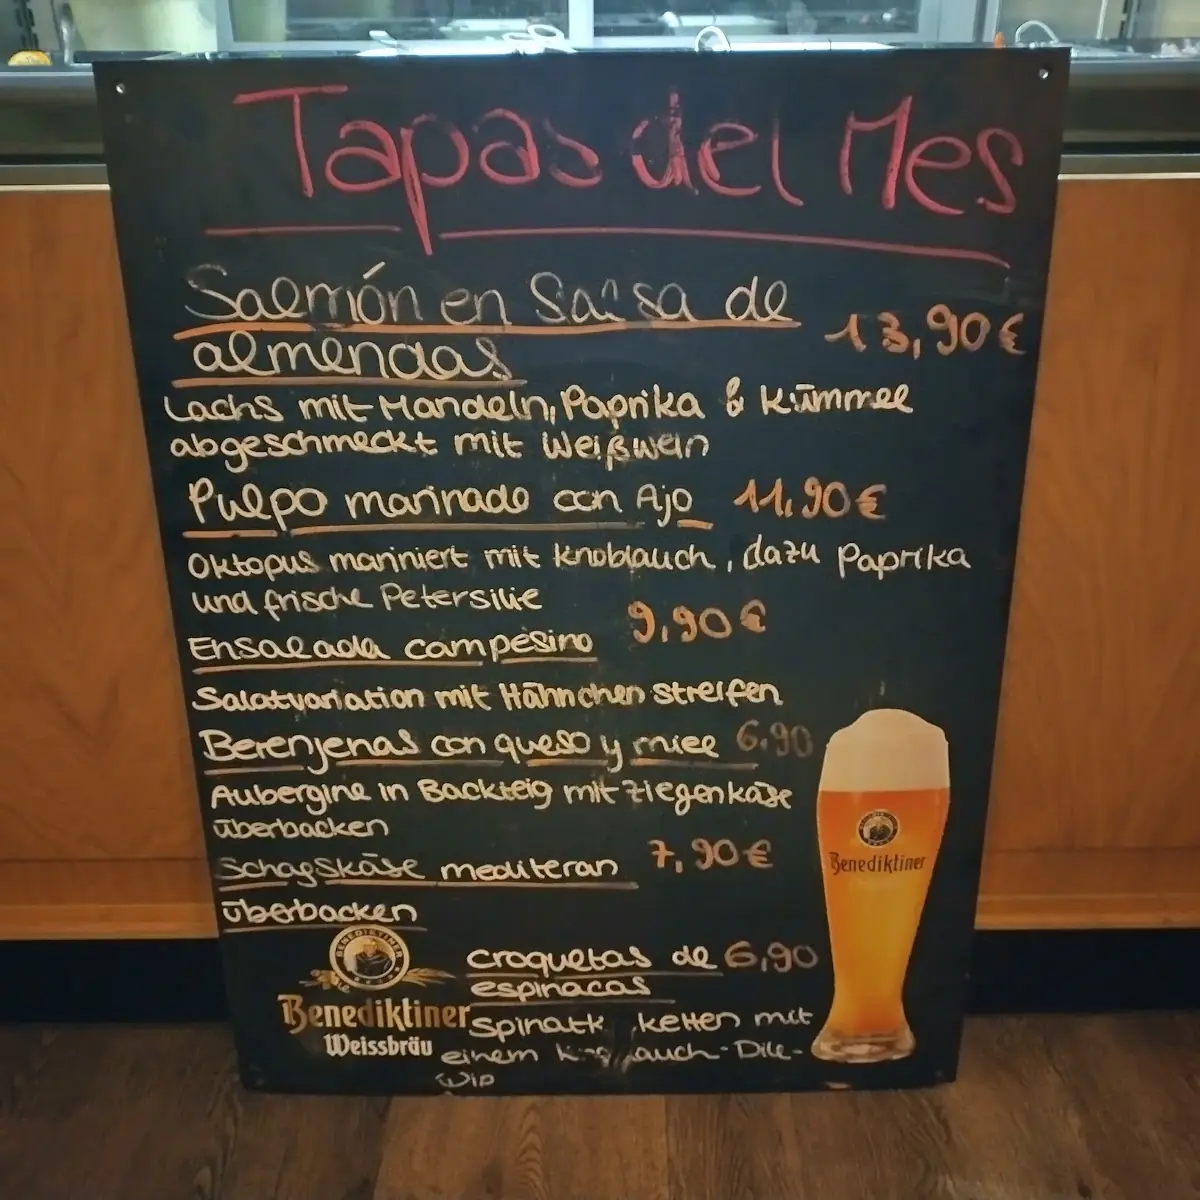 Tapas del Mes
Salmón en Salsa de
almendas
13,90€
Lachs mit Mandeln, Paprika & Kümmel
abgeschmeckt mit Weißwein
Pulpo marinado con Ajo 11,90€
Oktopus mariniert mit Knoblauch, dazu Paprika
und frische Petersilie
9,90€
Ensalada campesino
Salatvariation mit Hähnchen streifen
Berenjenas con queso y miel 6,90
Aubergine in Backteig mit Ziegenkäse
überbacken
Schagskäse mediteran 7,90€
überbacken
croquetas de 6,90
espinacas
Spinatk ketten mit
einem auch-Dill-
BENEDIKTINER
Benediktiner
Weissbräu
Benediktiner